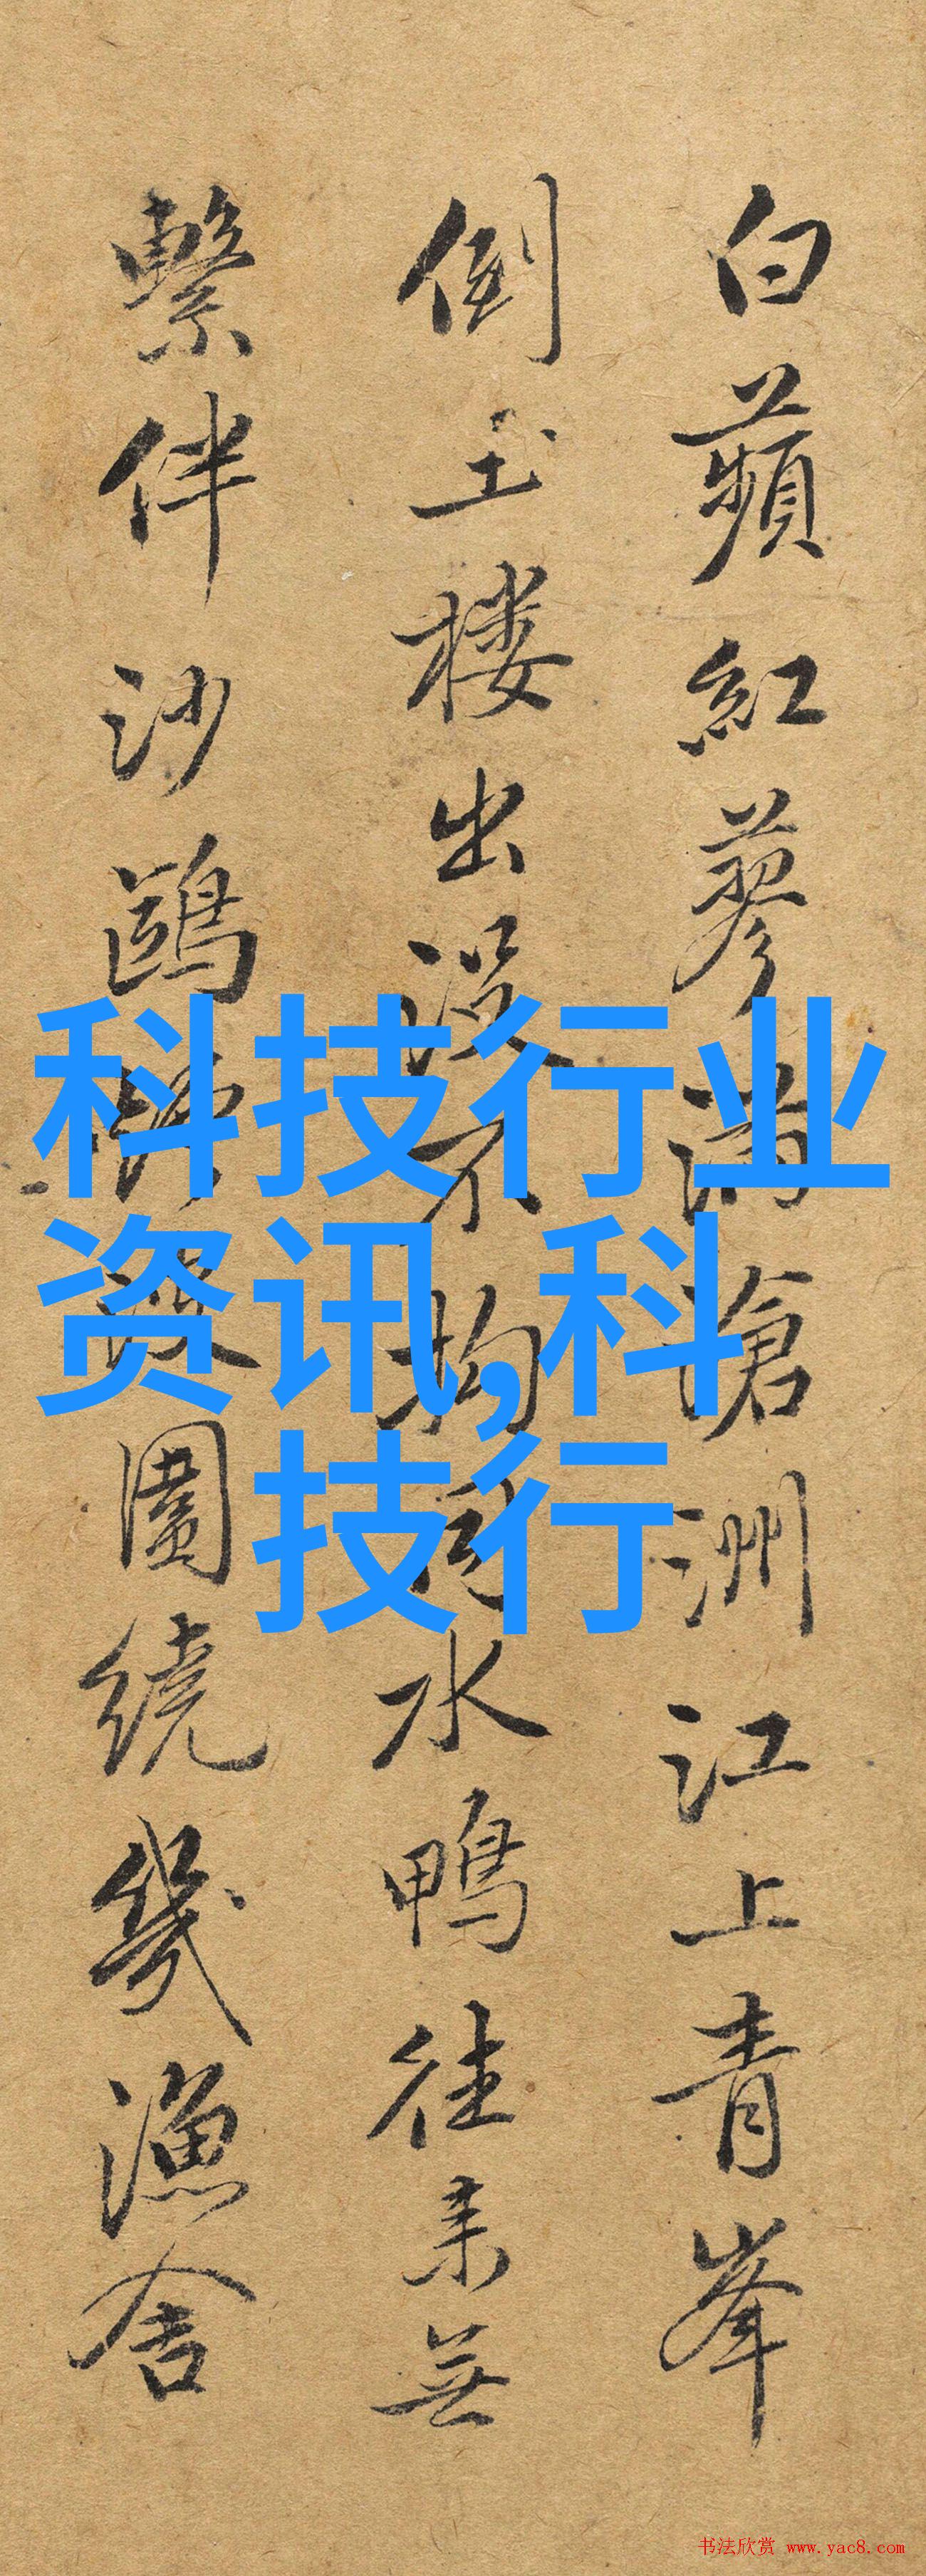 白蘋紅蓼滿滄洲江上青峯
倒玉楼出没不拘水鴨往来無
繫伴沙鷗圍繞幾漁舍
科技行业
资讯,科
技行
书法欣赏 www.yac8.com